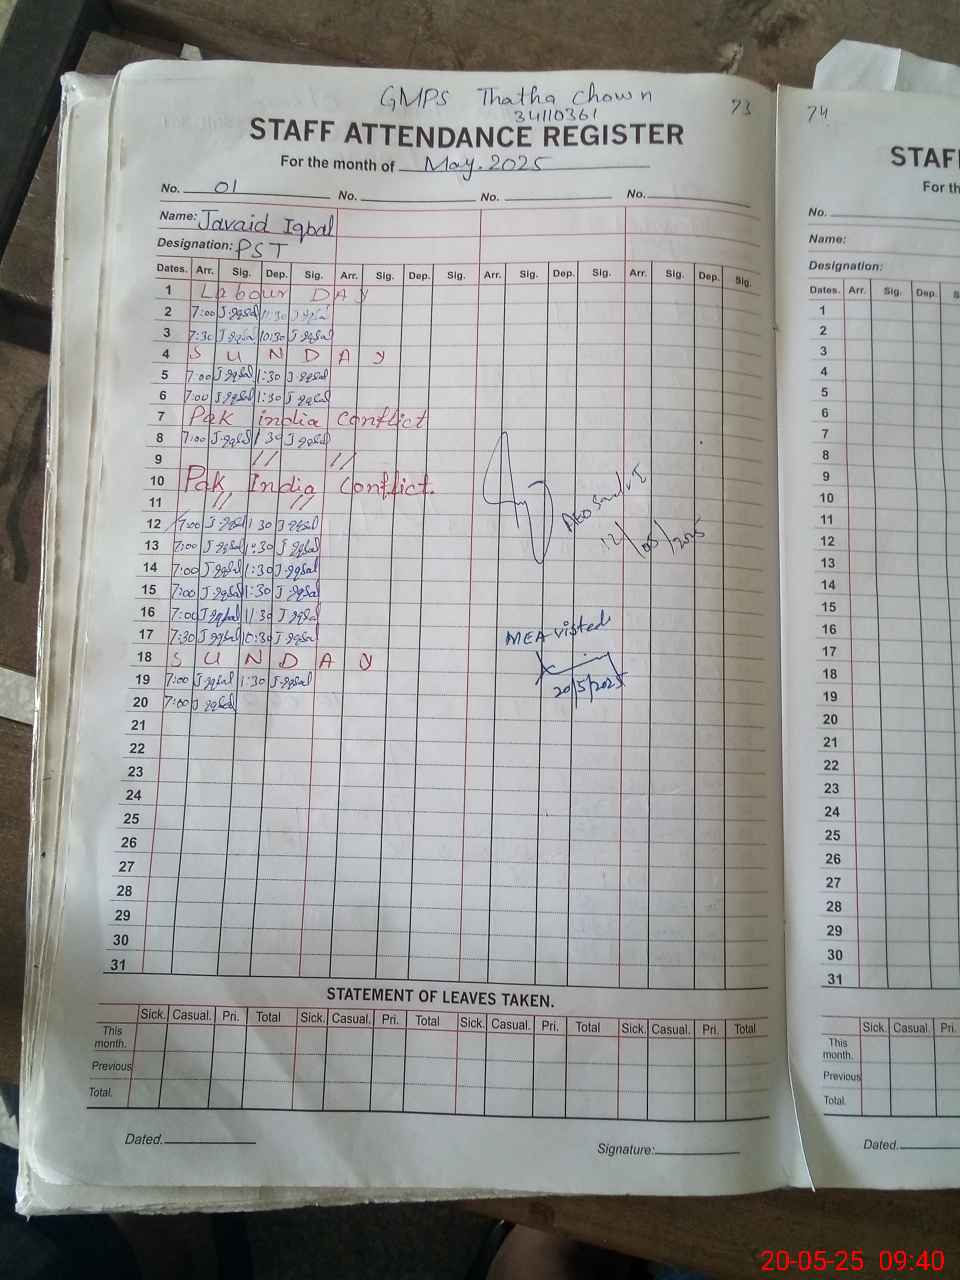 GMPS Thatha Chown
34110361
73
STAFF ATTENDANCE REGISTER
For the month of May. 2025
No. 01 No. No. No.
Name: Javaid Iqbal
Designation: PST
Dates. Arr. Sig. Dep. Sig. Arr. Sig. Dep. Sig. Arr. Sig. Dep. Sig. Arr. Sig. Dep. Sig.
1 Labour DAY
2 7:00 J-Iqbal 11:30 J-Iqbal
3 7:30 J-Iqbal 10:30 J-Iqbal
4 SUNDAY
5 7:00 J-Iqbal 1:30 J-Iqbal
6 7:00 J-Iqbal 1:30 J-Iqbal
7 Pak india Conflict
8 7:00 J-Iqbal 1 30 J-Iqbal
9 // //
10 Pak India Conflict.
11 // //
12 7:00 J-Iqbal 1 30 J-Iqbal
13 7:00 J-Iqbal 1:30 J-Iqbal
14 7:00 J-Iqbal 1:30 J-Iqbal
15 7:00 J-Iqbal 1:30 J-Iqbal
16 7:00 J-Iqbal 11:30 J-Iqbal
17 7:30 J-Iqbal 10:30 J-Iqbal
18 SUNDAY
19 7:00 J-Iqbal 1:30 J-Iqbal
20 7:00 J-Iqbal
21
22
23
24
25
26
27
28
29
30
31
AEO
12/05/2025
MEA visited
20/5/2025
STATEMENT OF LEAVES TAKEN.
Sick. Casual. Pri. Total Sick. Casual. Pri. Total Sick. Casual. Pri. Total Sick. Casual. Pri. Total
This month.
Previous
Total.
Dated. Signature:
74
STAF
For th
No.
Name:
Designation:
Dates. Arr. Sig. Dep. S
1
2
3
4
5
6
7
8
9
10
11
12
13
14
15
16
17
18
19
20
21
22
23
24
25
26
27
28
29
30
31
Sick. Casual. Pri.
This month.
Previous
Total.
Dated.
20-05-25 09:40